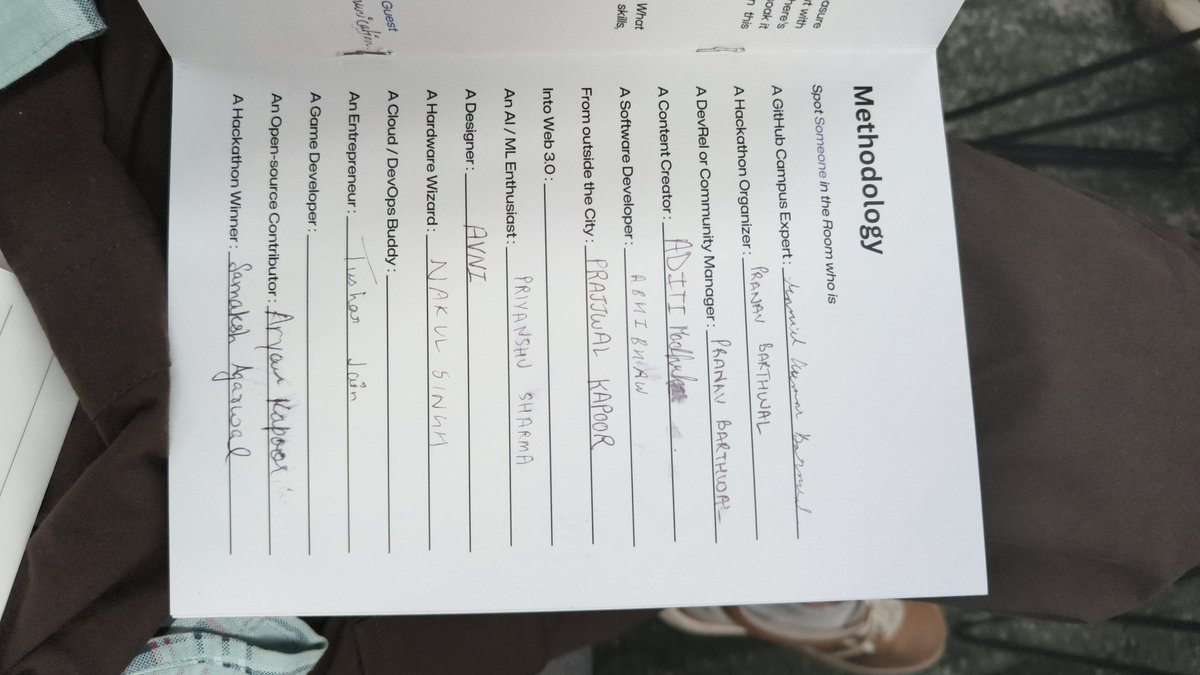 asure
it with
here's
oak it
n this
What
skills,
Guest
Methodology
Spot Someone in the Room who is
A GitHub Campus Expert : Kumar
A Hackathon Organizer : PRANAV BARTHWAL
A DevRel or Community Manager : PRANAV BARTHWAL
A Content Creator : ADITI Madhu
A Software Developer : ABHIBHAW
From outside the City : PRAJJWAL KAPOOR
Into Web 3.0 :
An AI / ML Enthusiast : PRIYANSHU SHARMA
A Designer : AVNI
A Hardware Wizard : NAKUL SINGH
A Cloud / DevOps Buddy :
An Entrepreneur : Tushar Jain
A Game Developer :
An Open-source Contributor : Aryan Kapoor
A Hackathon Winner : Samaksh Agarwal